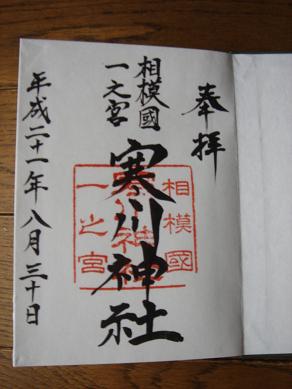 奉拝
相模國
一之宮
寒川神社
平成二十一年八月三十日
相模國
一之宮